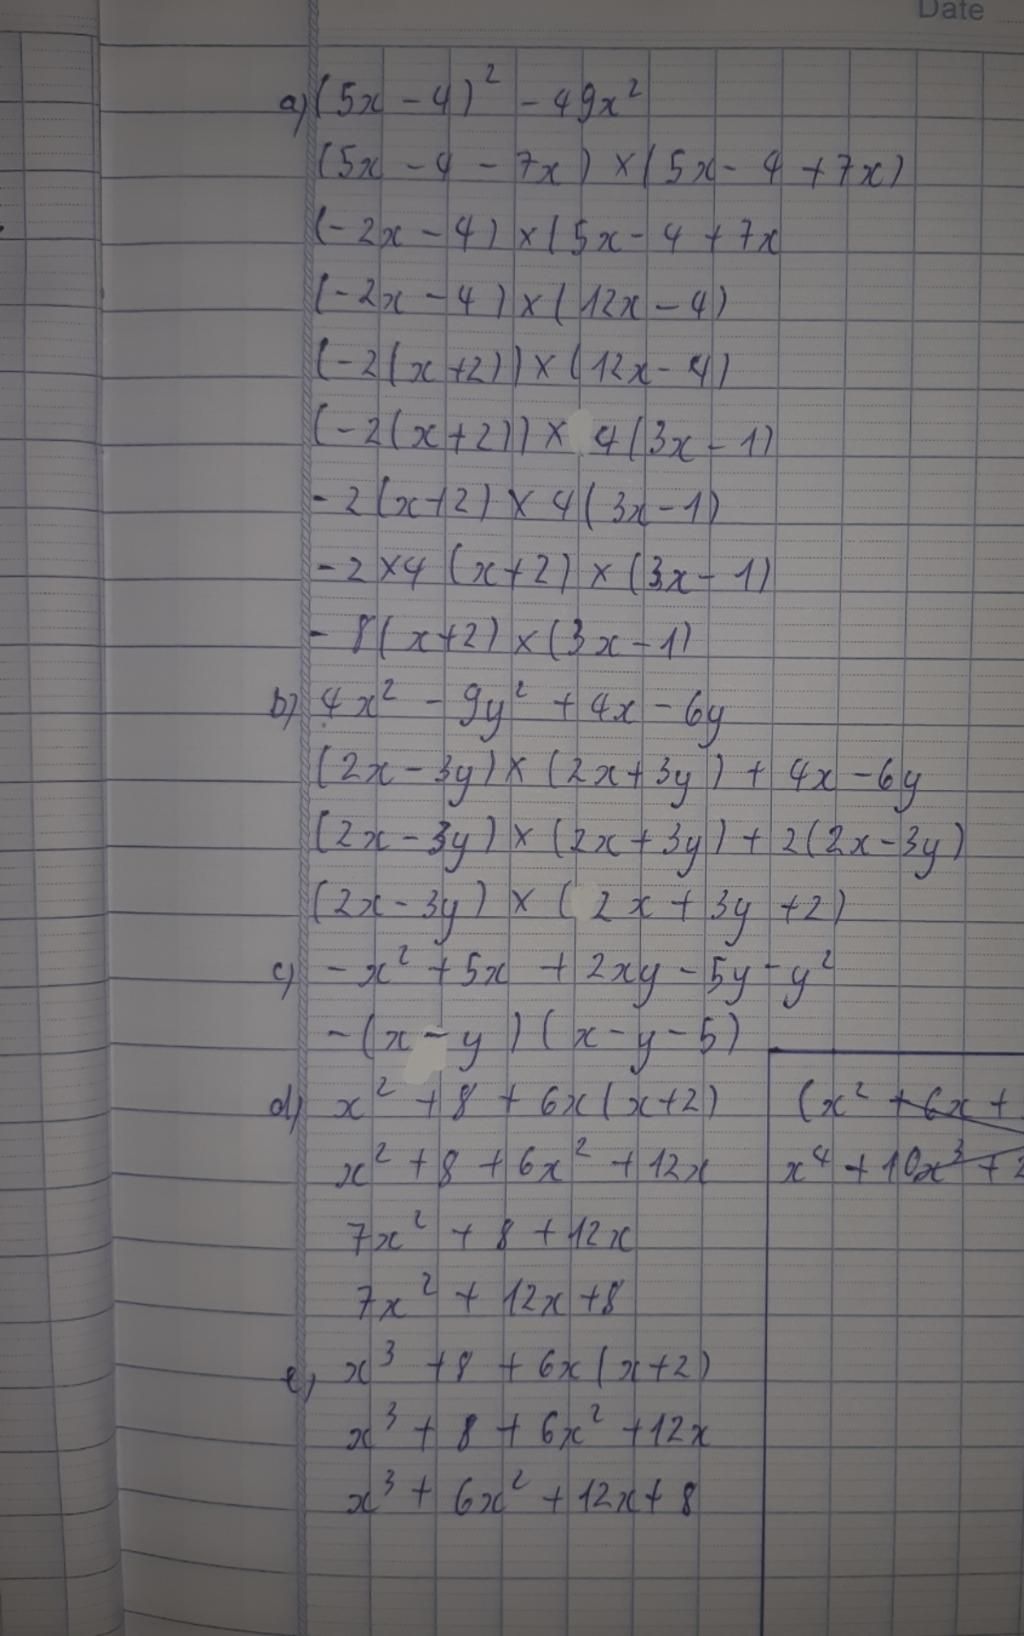 Date
a) (5x - 4)² - 49x²
(5x - 4 - 7x) × (5x - 4 + 7x)
(-2x - 4) × (5x - 4 + 7x
(-2x - 4) × (12x - 4)
(-2(x+2)) × (12x - 4)
(-2(x+2)) × 4(3x - 1)
-2(x+2) × 4(3x-1)
-2×4 (x+2) × (3x-1)
-8(x+2) × (3x-1)
b) 4x² - 9y² + 4x - 6y
(2x - 3y) × (2x+3y) + 4x - 6y
(2x - 3y) × (2x + 3y) + 2(2x-3y)
(2x - 3y) × (2x + 3y + 2)
c) -x² + 5x + 2xy - 5y - y²
-(x - y)(x - y - 5)
d) x² + 8 + 6x(x+2)
(x² + 6x +
x² + 8 + 6x² + 12x
x⁴ + 10x³ + 2
7x² + 8 + 12x
7x² + 12x + 8
e, x³ + 8 + 6x(x+2)
x³ + 8 + 6x² + 12x
x³ + 6x² + 12x + 8